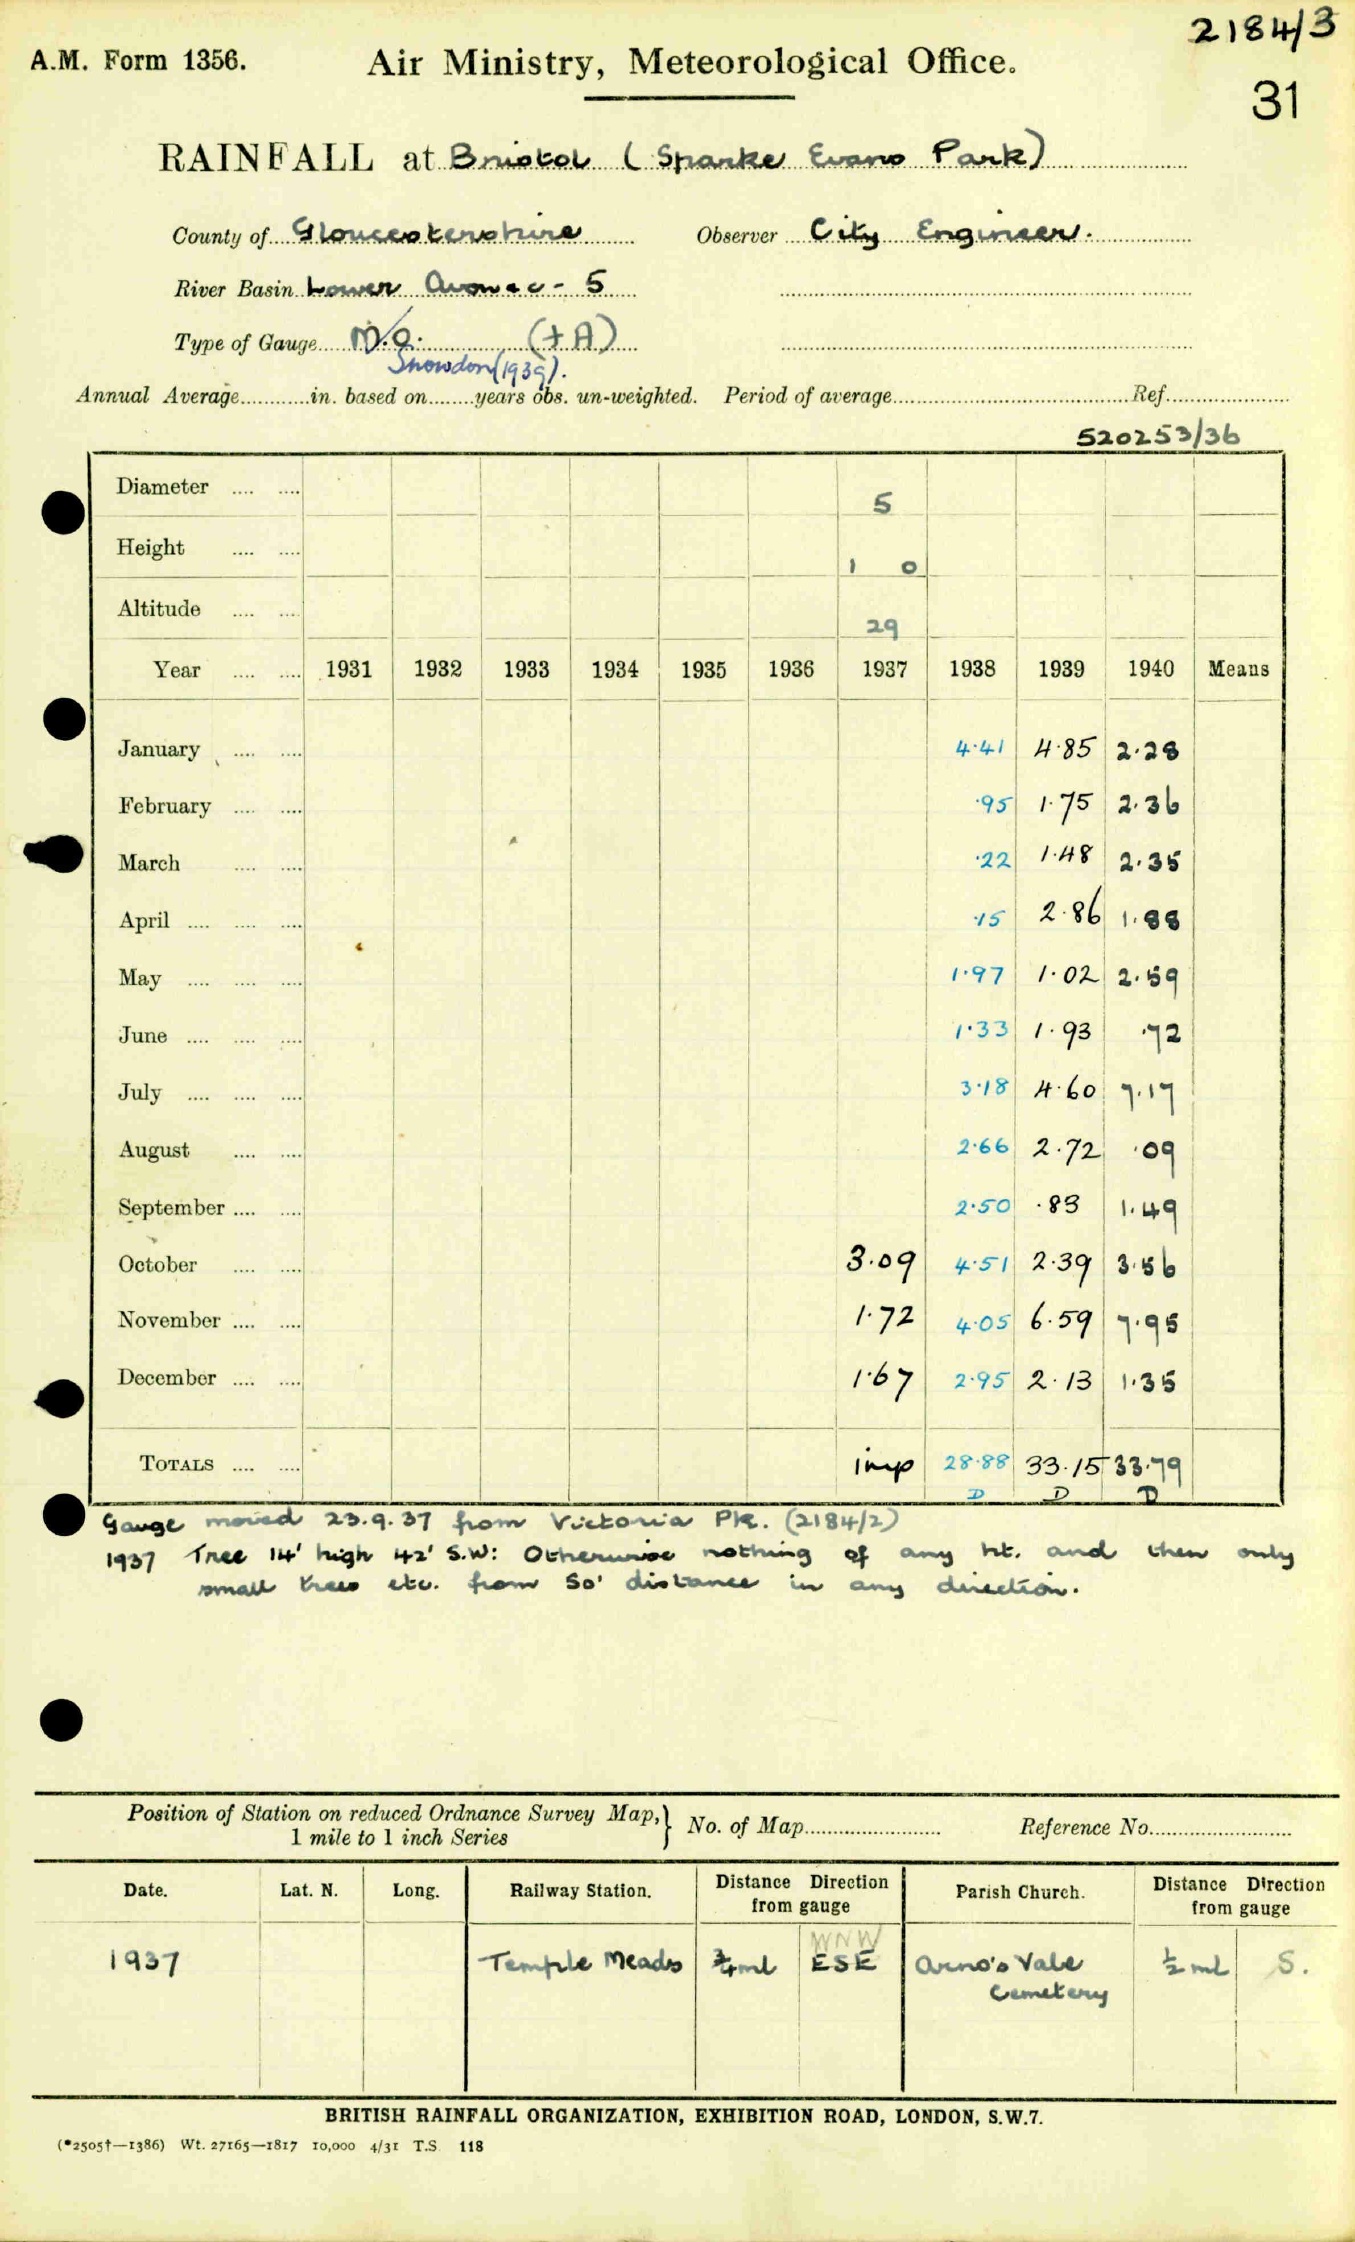 2184/3
A.M. Form 1356. Air Ministry, Meteorological Office.
31
RAINFALL at Bristol (Sparke Evans Park)
County of Gloucestershire Observer City Engineer.
River Basin Lower Avon &c - 5
Type of Gauge M.O. (+A)
Snowdon (1939).
Annual Average in. based on years obs. un-weighted. Period of average Ref.
520253/36
Diameter 5
Height 1 0
Altitude 29
Year 1931 1932 1933 1934 1935 1936 1937 1938 1939 1940 Means
January 4.41 4.85 2.28
February .95 1.75 2.36
March .22 1.48 2.35
April .15 2.86 1.88
May 1.97 1.02 2.59
June 1.33 1.93 .72
July 3.18 4.60 7.17
August 2.66 2.72 .09
September 2.50 .83 1.49
October 3.09 4.51 2.39 3.56
November 1.72 4.05 6.59 7.95
December 1.67 2.95 2.13 1.35
TOTALS imp 28.88 33.15 33.79
D D D
Gauge moved 23.9.37 from Victoria Pk. (2184/2)
1937 Tree 14' high 42' S.W: Otherwise nothing of any ht. and then only
small trees etc. from 50' distance in any direction.
Position of Station on reduced Ordnance Survey Map, } No. of Map Reference No.
1 mile to 1 inch Series
Date. Lat. N. Long. Railway Station. Distance Direction from gauge Parish Church. Distance Direction from gauge
WNW
1937 Temple Meads ¾ ml ESE Arno's Vale ½ ml S.
Cemetery
BRITISH RAINFALL ORGANIZATION, EXHIBITION ROAD, LONDON, S.W.7.
(*2505†—1386) Wt. 27165—1817 10,000 4/31 T.S 118